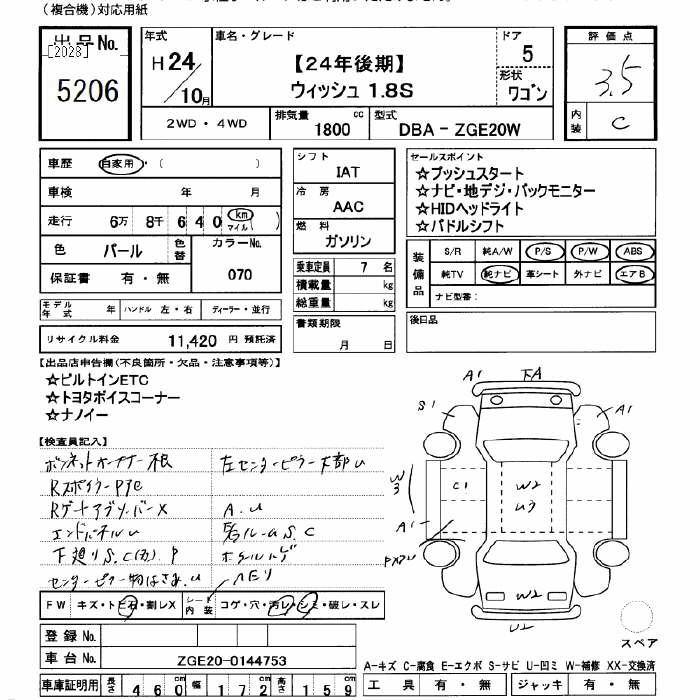 (複合機)対応用紙
出品No.
[2028]
5206
年式
H24/10月
車名・グレード
【24年後期】
ウィッシュ 1.8S
ドア
5
形状
ワゴン
評価点
3.5
内装
C
2WD・4WD
排気量
1800 cc
型式
DBA - ZGE20W
車歴 自家用・( )
車検 年 月
走行 6万 8千 6 4 0 km マイル( )
色 パール 色替 カラーNo.
保証書 有・無 070
モデル年式 年 ハンドル 左・右 ディーラー・並行
リサイクル料金 11,420 円 預託済
シフト
IAT
冷房
AAC
燃料
ガソリン
乗車定員 7 名
積載量 kg
総重量 kg
書類期限
月 日
セールスポイント
☆プッシュスタート
☆ナビ・地デジ・バックモニター
☆HIDヘッドライト
☆パドルシフト
装備品
S/R 純A/W P/S P/W ABS
純TV 純ナビ 革シート 外ナビ エアB
ナビ型番:
後日品
【出品店申告欄(不良箇所・欠品・注意事項等)】
☆ビルトインETC
☆トヨタボイスコーナー
☆ナノイー
【検査員記入】
左センターピラー下部U
A.U
エンドパネルU
下廻りS.C
FW キズ・トビ石・割レX
シート内装 コゲ・穴・汚レ・シミ・破レ・スレ
登録No.
車台No. ZGE20-0144753
車庫証明用 長さ 460 幅 172 高さ 159
A1 下A
S1 A1
W3 C1 W2
A1
W2
U2
スペア
A-キズ C-腐食 E-エクボ S-サビ U-凹ミ W-補修 XX-交換済
工具 有・無 ジャッキ 有・無